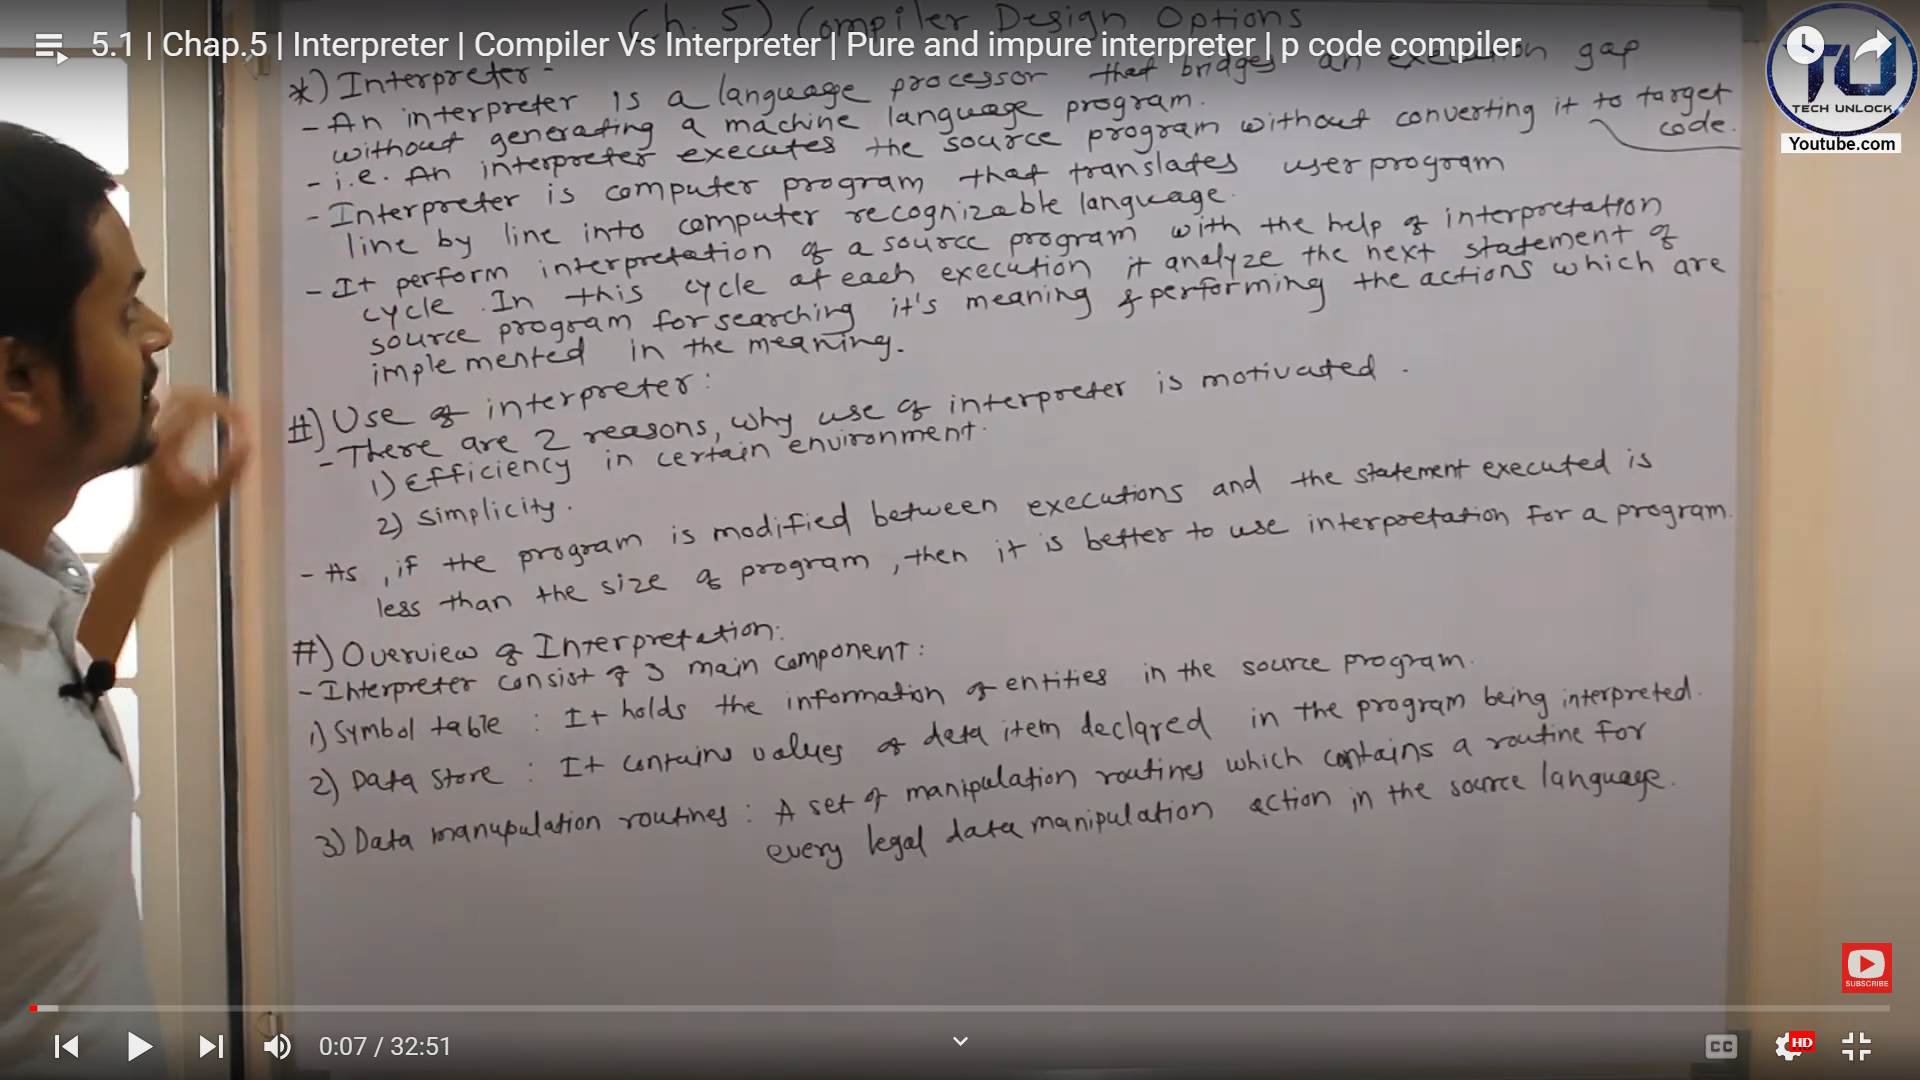 Ch. 5) Compiler Design Options
5.1 | Chap.5 | Interpreter | Compiler Vs Interpreter | Pure and impure interpreter | p code compiler
TECH UNLOCK
Youtube.com
*) Interpreter -
- An interpreter is a language processor that bridges an execution gap
without generating a machine language program.
- i.e. An interpreter executes the source program without converting it to target
code.
- Interpreter is computer program that translates user program
line by line into computer recognizable language.
- It perform interpretation of a source program with the help of interpretation
cycle. In this cycle at each execution it analyze the next statement of
source program for searching it's meaning & performing the actions which are
implemented in the meaning.
#) Use of interpreter:
- There are 2 reasons, why use of interpreter is motivated.
1) Efficiency in certain environment.
2) Simplicity.
- As, if the program is modified between executions and the statement executed is
less than the size of program, then it is better to use interpretation for a program.
#) Overview of Interpretation:
- Interpreter consist of 3 main component:
1) Symbol table : It holds the information of entities in the source program.
2) Data store : It contains values of data item declared in the program being interpreted.
3) Data manupulation routines : A set of manipulation routines which contains a routine for
every legal data manipulation action in the source language.
SUBSCRIBE
0:07 / 32:51
CC
HD